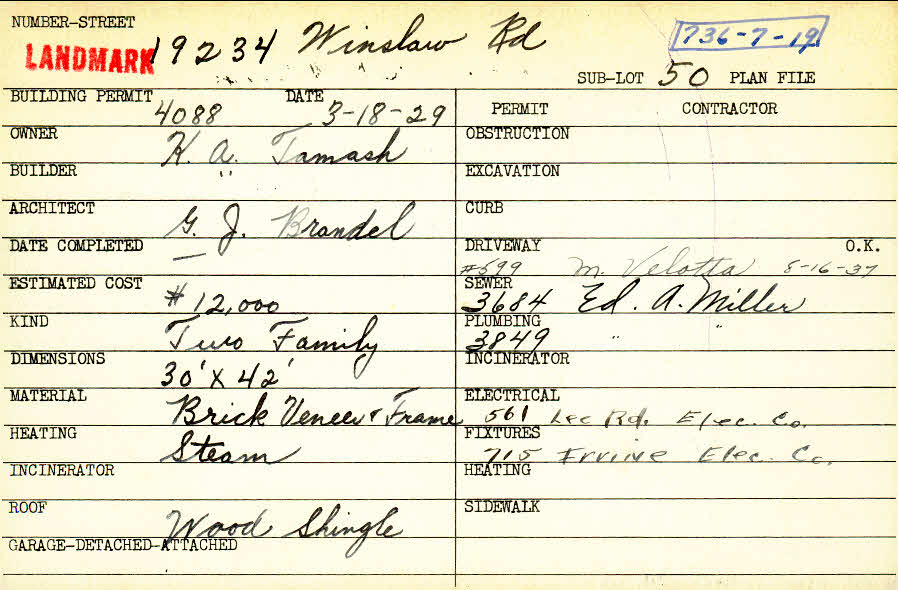 NUMBER-STREET
LANDMARK 19234 Winslow Rd 736-7-19
SUB-LOT 50 PLAN FILE
BUILDING PERMIT 4088 DATE 3-18-29
OWNER K. A. Tamash
BUILDER "
ARCHITECT G. J. Brandel
DATE COMPLETED —
ESTIMATED COST $12,000
KIND Two Family
DIMENSIONS 30' X 42'
MATERIAL Brick Veneer & Frame
HEATING Steam
INCINERATOR
ROOF Wood Shingle
GARAGE-DETACHED-ATTACHED
PERMIT CONTRACTOR
OBSTRUCTION
EXCAVATION
CURB
DRIVEWAY O.K.
#599 M. Velotta 8-16-37
SEWER
3684 Ed. A. Miller
PLUMBING
3849 " "
INCINERATOR
ELECTRICAL
561 Lee Rd. Elec. Co.
FIXTURES
715 Irvine Elec. Co.
HEATING
SIDEWALK